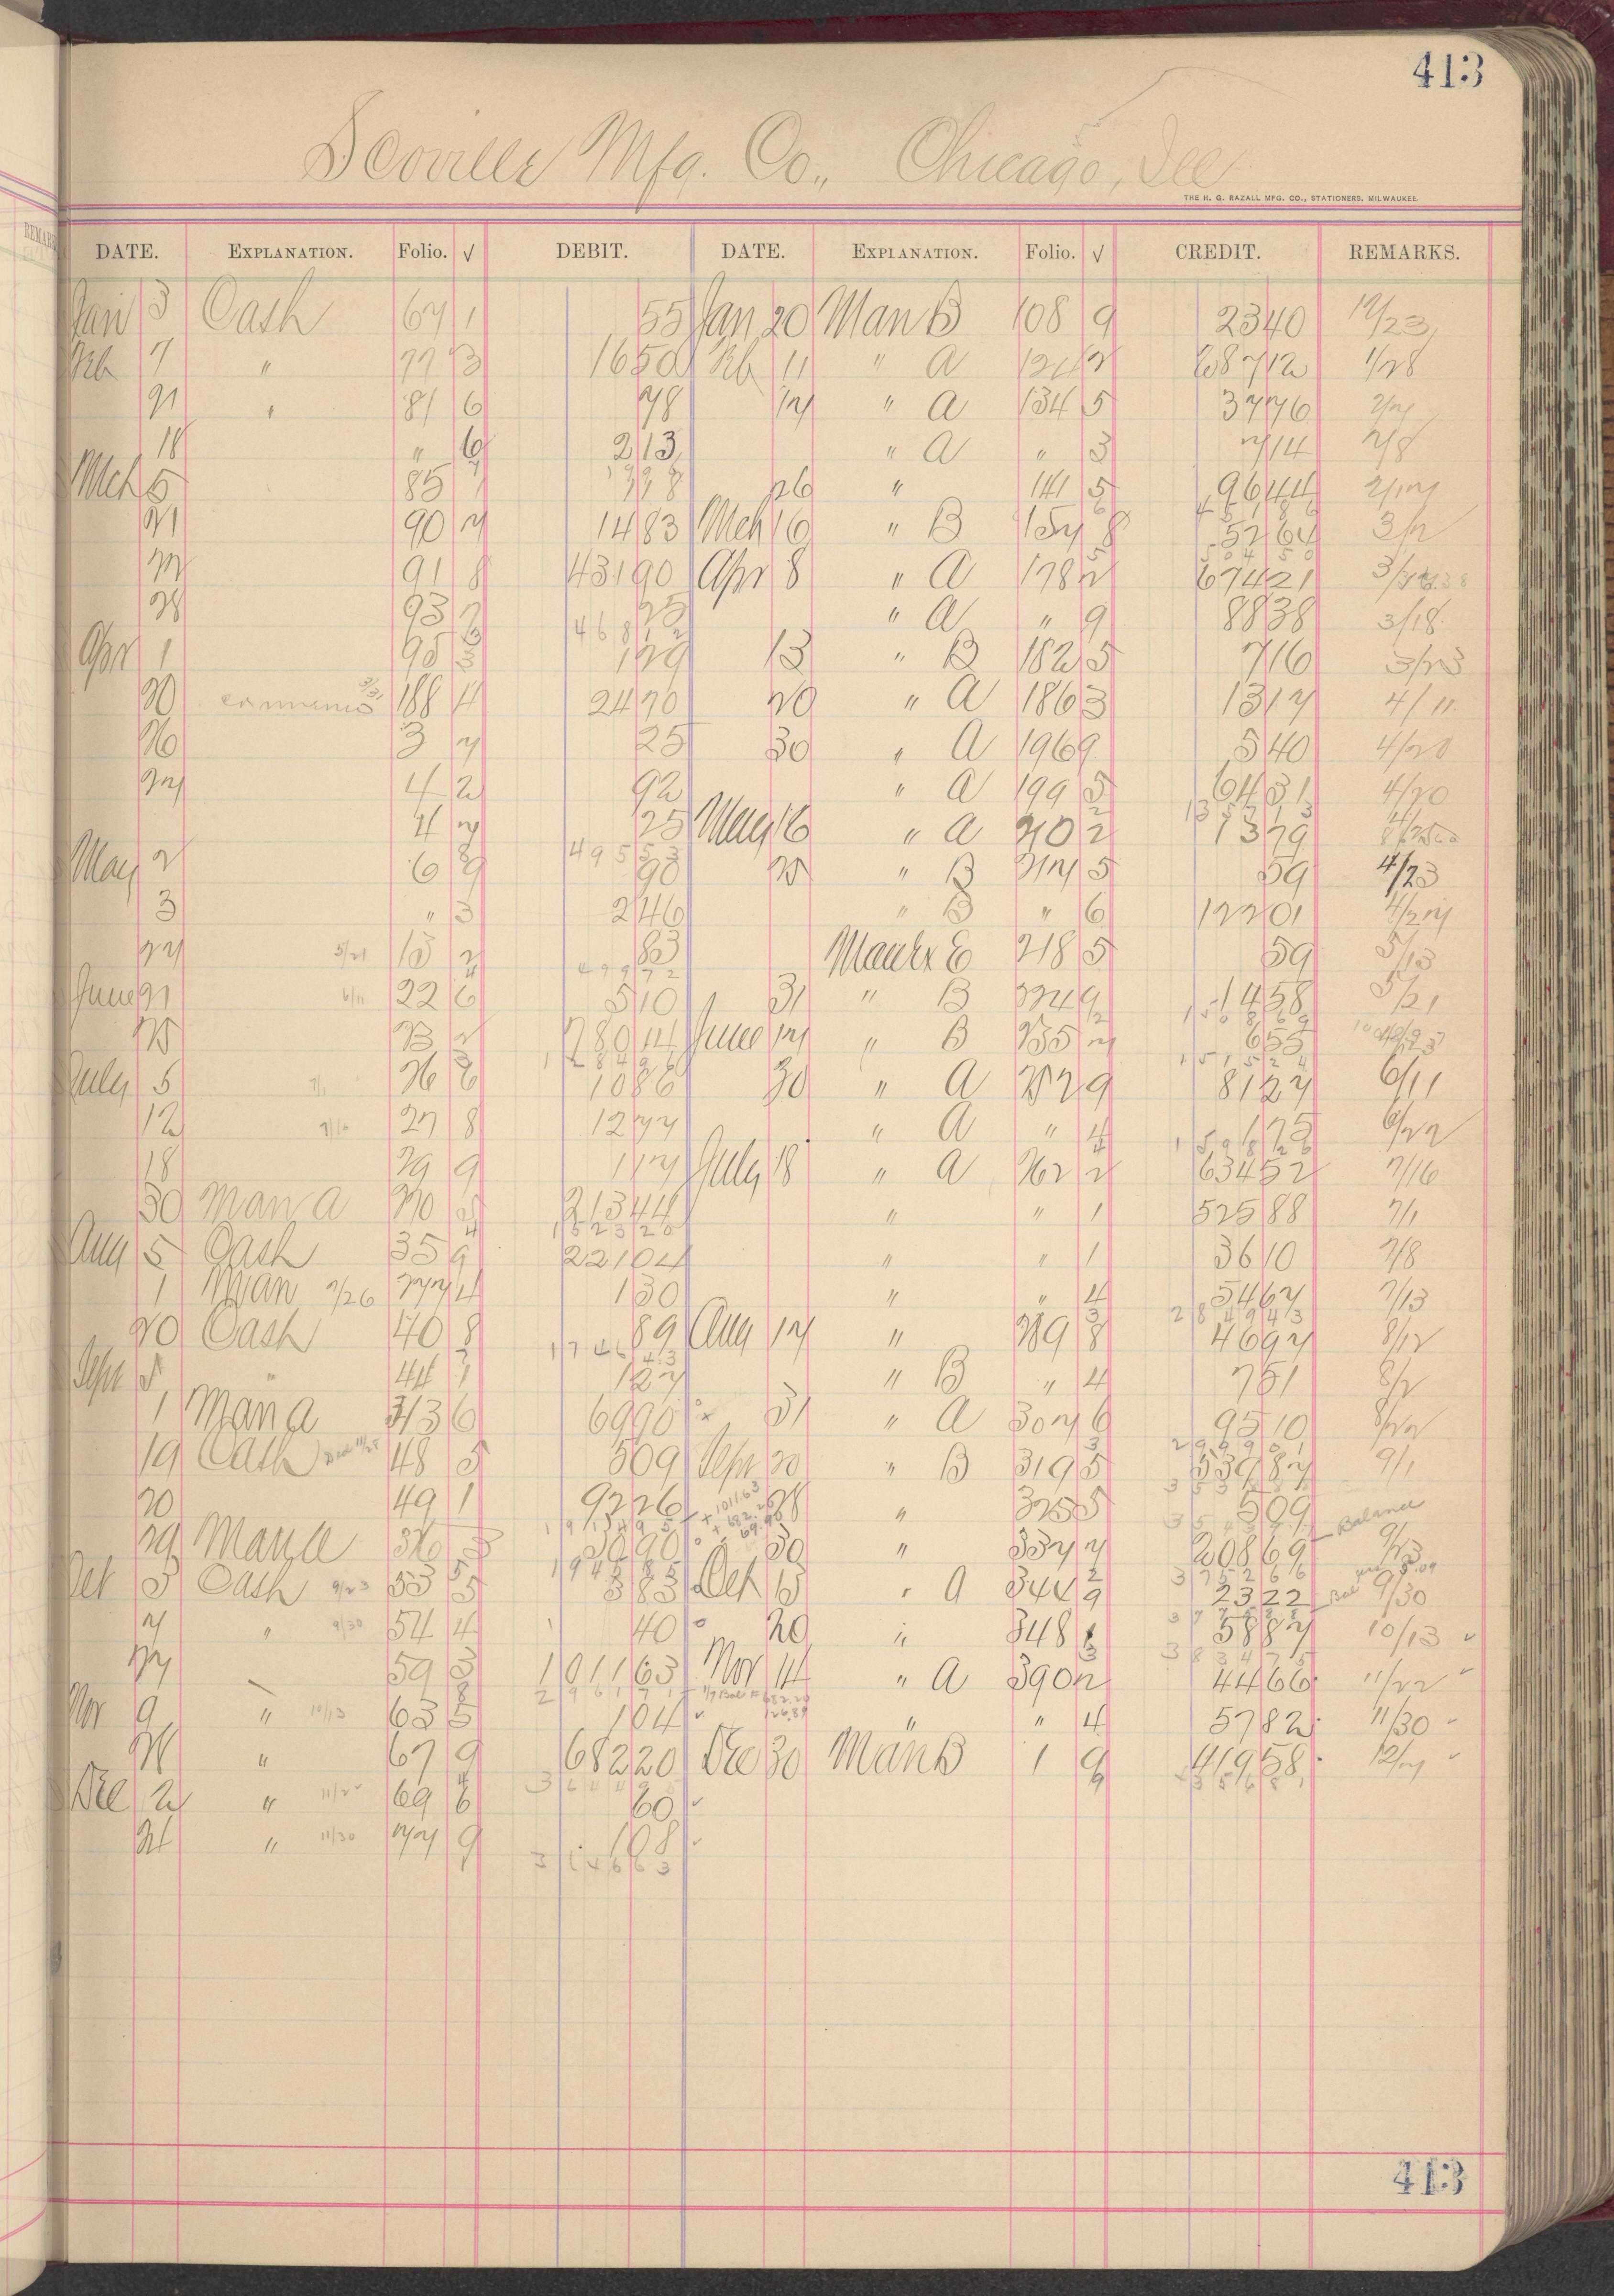 413
Scoville Mfg. Co., Chicago, Ill
THE H. G. RAZALL MFG. CO., STATIONERS, MILWAUKEE.
DATE. EXPLANATION. Folio. √ DEBIT. DATE. EXPLANATION. Folio. √ CREDIT. REMARKS.
Jan 3 Cash 67 1 55 Jan 20 Man B 108 9 23 40 12/23
Feb 7 " 77 3 16 50 Feb 11 " A 124 2 287 12 1/28
21 " 81 6 78 17 " A 134 5 37 76 2/7
18 " 6 2 13 " A " 3 7 14 2/8
Mch 5 85 26 " 141 5 96 44 2/17
21 90 7 14 83 Mch 16 " B 157 8 52 64 3/2
22 91 8 431 90 Apr 8 " A 178 2 674 21
28 93 2 25 " A " 9 88 38 3/18
4 6 8 1 2
Apr 1 95 3 1 29 13 " B 182 5 7 16 3/23
20 3/31 188 4 24 70 20 " A 186 3 13 17 4/11
26 3 7 25 30 " A 196 9 5 40 4/20
27 4 2 92 " A 199 5 64 31 4/20
4 7 25 May 16 " A 210 2 13 79
4 9 5 5 3
May 2 6 9 90 25 " B 217 5 59 4/23
3 " 3 2 46 " B " 6 122 01 4/27
27 5/21 13 2 83 E 218 5 59 5/13
4 9 9 7 2
June 21 6/11 22 6 5 10 31 " B 224 9 14 58 5/21
1 5 0 8 6 9
25 23 2 780 14 June 17 " B 235 7 6 55
1 2 8 4 9 6 1 5 1 5 2 4
July 5 7/1 26 6 10 86 30 " A 252 9 81 27 6/11
12 7/16 27 8 12 77 " A " 4 1 75 6/22
1 5 9 8 2 6
18 29 9 1 17 July 18 " A 262 2 634 52 7/16
30 Man A 270 213 44 " " 1 525 88 7/1
1 5 2 3 2 0
Aug 5 Cash 35 9 221 04 " " 1 36 10 7/8
1 Man 7/26 277 4 1 30 " " 4 54 67 7/13
2 8 4 9 4 3
20 Cash 40 8 89 Aug 17 " 289 8 46 97 8/12
1 7 4 6 4 3
Sept 5 " 44 1 1 27 " B " 4 7 51 8/2
1 Man A 313 6 69 90 31 " A 307 6 95 10 8/22
2 9 9 9 0 1
19 Cash 48 5 5 09 Sept 20 " B 319 5 539 87 9/1
20 49 1 92 26 + 1011.63 28 " 325 5 5 09
+ 682.20
69.90
Balance
29 Man A 30 90 30 " 337 7 208 69 9/23
1 9 4 5 8 5 3 7 5 2 6 6
Oct 3 Cash 9/23 53 5 3 83 Oct 13 " A 344 9 23 22 9/30
7 " 9/30 54 4 40 20 " 348 1 58 87 10/13 ✓
3 8 3 4 7 5
27 59 1011 63 Nov 14 " A 390 2 44 66 11/22 ✓
2 9 6 1 7 1
682.20
126.39
Nov 9 " 10/13 63 5 1 04 ✓ " " 4 57 82 11/30 ✓
28 " 67 9 682 20 Dec 30 Man B 1 9 419 58 12/7 ✓
3 6 4 4 9 5 4 3 5 6 8 1
Dec 2 " 11/22 69 6 60 ✓
24 " 11/30 77 9 1 08 ✓
3 6 4 6 6 3
413